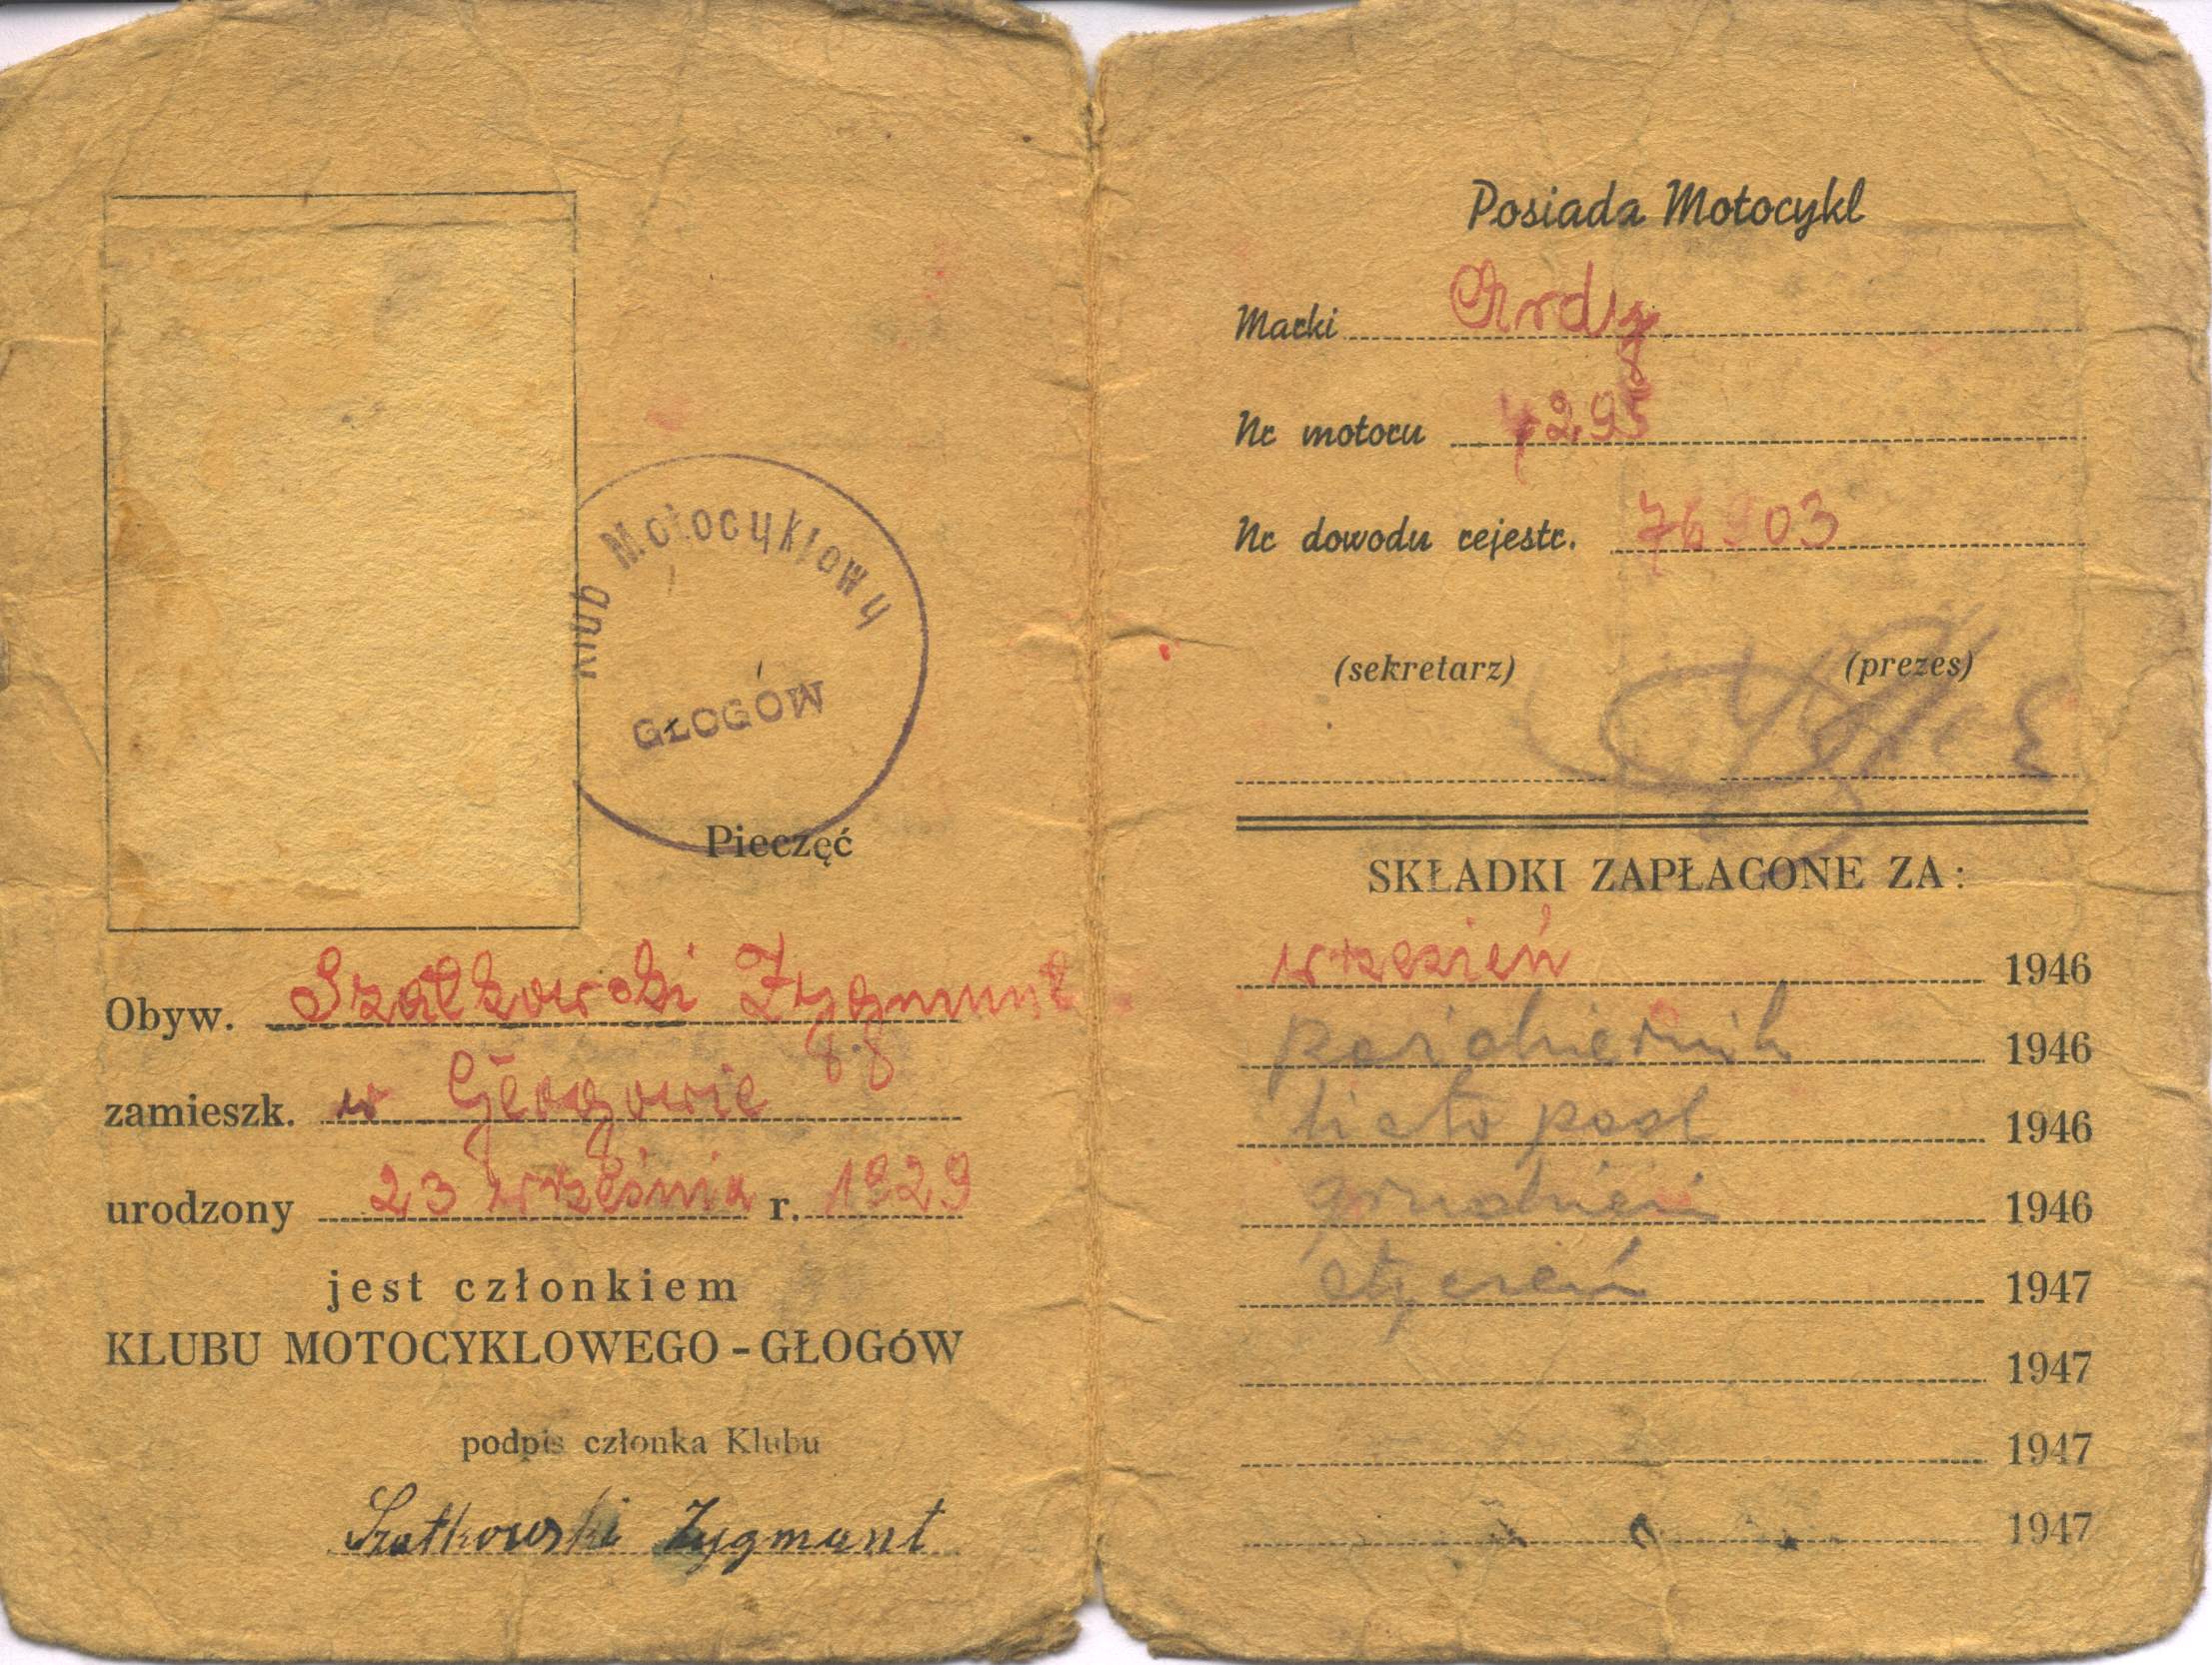 Klub Motocyklowy
GŁOGÓW
Pieczęć
Obyw. Szatkowski Zygmunt
zamieszk. w Głogowie 88
urodzony 23 września r. 1929
jest członkiem
KLUBU MOTOCYKLOWEGO - GŁOGÓW
podpis członka Klubu
Szatkowski Zygmunt
Posiada Motocykl
Marki
Nr motoru
Nr dowodu rejestr. 76903
(sekretarz) (prezes)
SKŁADKI ZAPŁACONE ZA:
wrzesień 1946
październik 1946
listopad 1946
grudzień 1946
styczeń 1947
1947
1947
1947